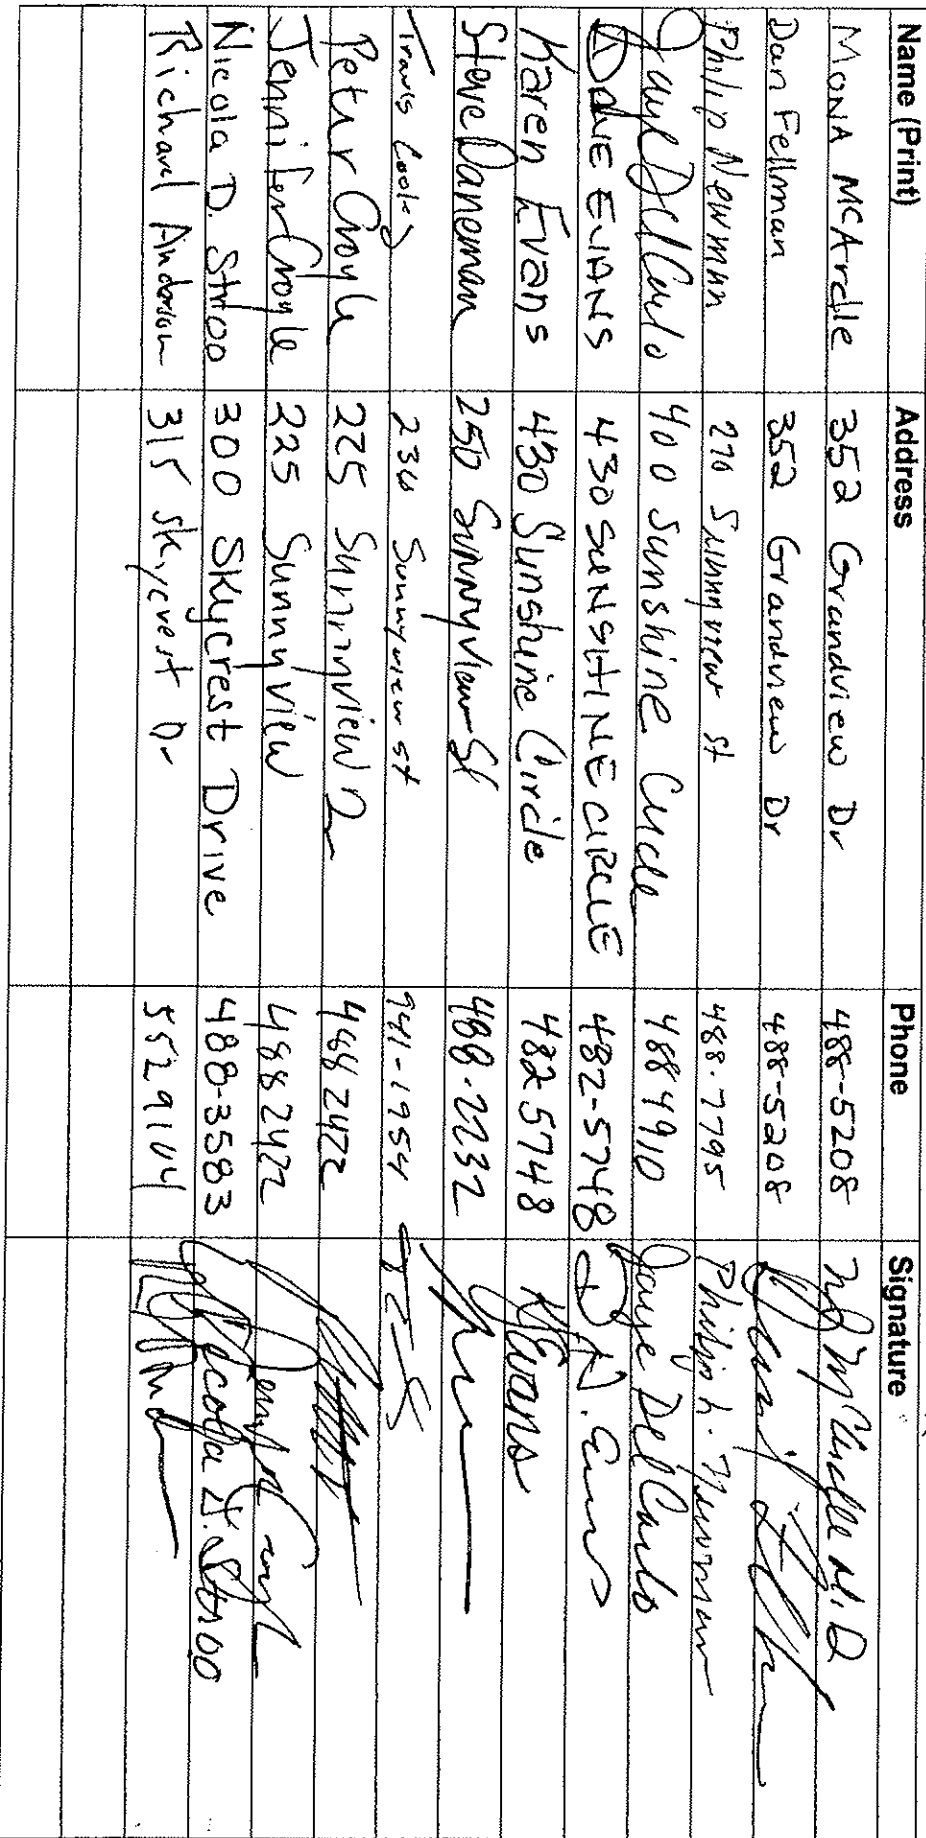 Name (Print) Address Phone Signature
MONA MCArdle 352 Grandview Dr 488-5208
Dan Fellman 352 Grandview Dr 488-5208
Philip Newman 270 Sunnyview st 488-7795 Philip L. Newman
Jaye Del Carlo 400 Sunshine Circle 488 4910 Jaye Del Carlo
EVANS 430 SUNSHINE CIRCLE 482-5748 Evans
Karen Evans 430 Sunshine Circle 482 5748 K Evans
Steve Daneman 250 Sunnyview St 488-2232
Travis Cooley 230 Sunnyview st 941-1954
Peter Croyle 225 Sunnyview Dr 488 2422
Jennifer Croyle 225 Sunnyview 488 2422
Nicola D. Stroo 300 Skycrest Drive 488-3583 Nicola D. Stroo
Richard Anderson 315 Skycrest Dr 552 9104